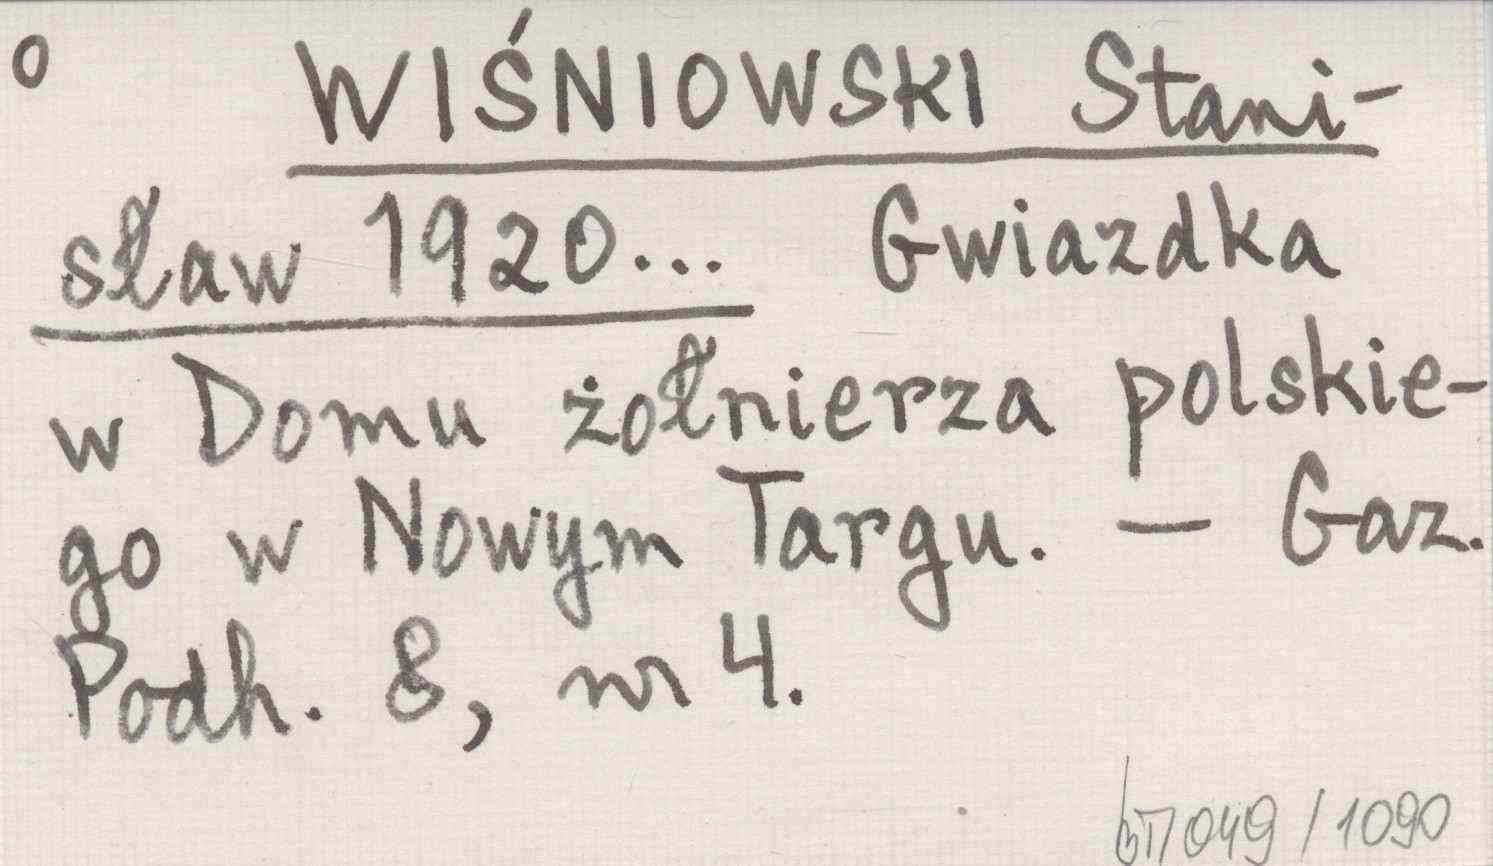 o WIŚNIOWSKI Stani-
sław 1920... Gwiazdka
w Domu żołnierza polskie-
go w Nowym Targu. — Gaz.
Podh. 8, nr 4.
049/1090